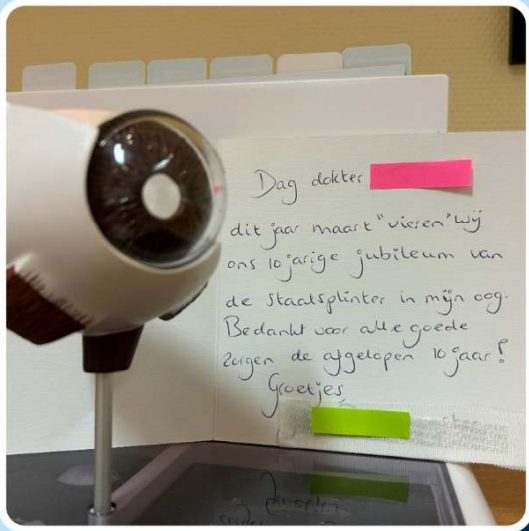 Dag dokter
dit jaar maart "vieren" wij
ons 10 jarige jubileum van
de staalsplinter in mijn oog.
Bedankt voor alle goede
zorgen de afgelopen 10 jaar!
Groetjes